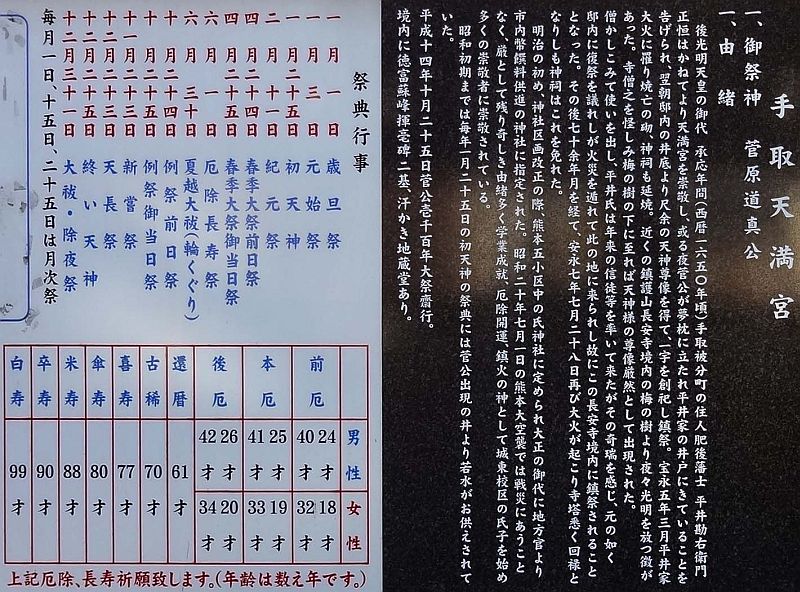 手取天満宮
一、御祭神　菅原道真公
一、由緒
後光明天皇の御代　承応年間(西暦一六五〇年頃)手取被分町の住人肥後藩士 平井勘右衛門
正恒はかねてより天満宮を崇敬し、或る夜菅公が夢枕に立たれ平井家の井戸にきていることを
告げられ、翌朝邸内の井底より尺余の天神尊像を得て、一宇を創祀し鎮祭。宝永五年三月平井家
大火に罹り焼亡の砌、神祠も延焼。近くの鎮護山長安寺境内の梅の樹より夜々光明を放つ徴が
あった。寺僧之を怪しみ梅の樹の下に至れば天神様の尊像厳然として出現された。
僧かしこみて使いを出し、平井氏は年来の信徒等を率いて来たがその奇瑞を感じ、元の如く
邸内に復祭を議れしが火災を遁れて此の地に来られし故にこの長安寺境内に鎮祭されること
となった。その後七十余年月を経て、安永七年七月二十八日再び大火が起こり寺塔悉く回禄と
なりしも神祠はこれを免れた。
明治の初め、神社区画改正の際、熊本五小区中の氏神社に定められ大正の御代に地方官より
市内幣饌料供進の神社に指定された。昭和二十年七月一日の熊本大空襲では戦災にあうこと
なく、厳として残り奇しき由緒多く学業成就、厄除開運、鎮火の神として城東校区の氏子を始め
多くの崇敬者に崇敬されている。
昭和初期までは毎年一月二十五日の初天神の祭典には菅公出現の井より若水がお供えされて
いた。
平成十四年十月二十五日菅公壱千百年大祭齋行。
境内に徳富蘇峰揮毫碑二基、汗かき地蔵堂あり。
祭典行事
一月一日　歳旦祭
一月三日　元始祭
一月二十五日　初天神
二月十一日　紀元祭
四月二十四日　春季大祭前日祭
四月二十五日　春季大祭御当日祭
六月一日　厄除長寿祭
六月三十日　夏越大祓(輪くぐり)
十月二十四日　例祭前日祭
十月二十五日　例祭御当日祭
十一月二十三日　新嘗祭
十二月二十三日　天長祭
十二月二十五日　終い天神
十二月三十一日　大祓・除夜祭
毎月一日、十五日、二十五日は月次祭
前厄　男性 24才 40才　女性 18才 32才
本厄　25才 41才　19才 33才
後厄　26才 42才　20才 34才
還暦　61才
古稀　70才
喜寿　77才
傘寿　80才
米寿　88才
卒寿　90才
白寿　99才
上記厄除、長寿祈願致します。(年齢は数え年です。)